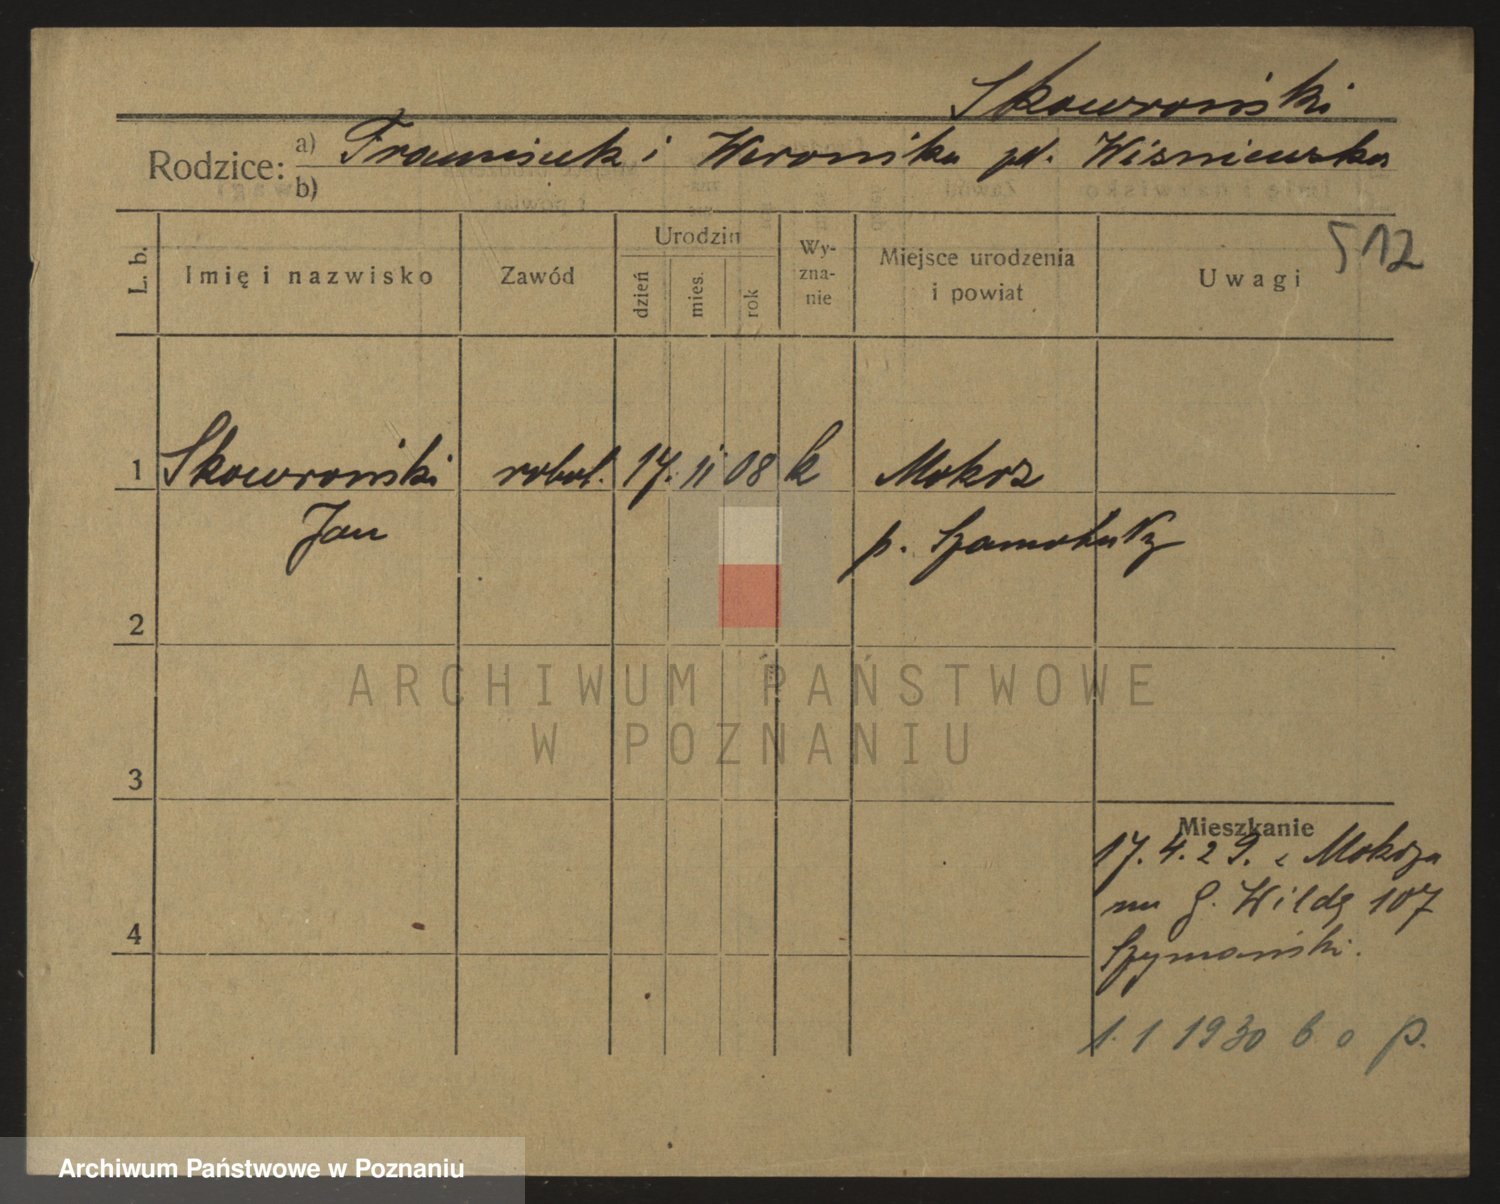 Skowroński
Rodzice: a) Franciszek i Weronika zd. Wiśniewska
b)
512
L. b.
Imię i nazwisko
Zawód
Urodzin
dzień
mies.
rok
Wy-
zna-
nie
Miejsce urodzenia
i powiat
Uwagi
1 Skowroński robot. 17. 11 08 k Mokrz
Jan p. Szamotuły
2
3
4
Mieszkanie
17. 4. 29. z Mokrza
na G. Wildę 107
Szymański.
1. 1 1930 b o p.
ARCHIWUM PAŃSTWOWE
W POZNANIU
Archiwum Państwowe w Poznaniu